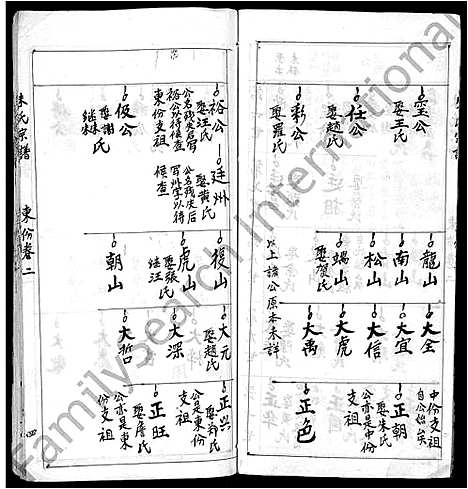 壁公
娶王氏
任公
娶趙氏
彩公
娶羅氏
龍山
南山
松山
端山
娶賀氏
以上諸公原本未詳
大全
大宜
大信
大虎
大禹
中份支祖
自公始矣
正朝
娶朱氏
公亦是中份
支祖
正色
裕公
娶汪氏
公名殘失后寫
裕公以待候查
東份支祖
廷州
娶黃氏
公名殘失后
寫州字以待
候查
伋公
娶謝氏
继林氏
稷山
虎山
娶張氏
继汪氏
朝山
大元
娶趙氏
大深
大哲
正兴
娶郑氏
公是東份
支祖
正旺
娶詹氏
公亦是東
份支祖
朱氏宗譜
東份卷二
Familysearch International